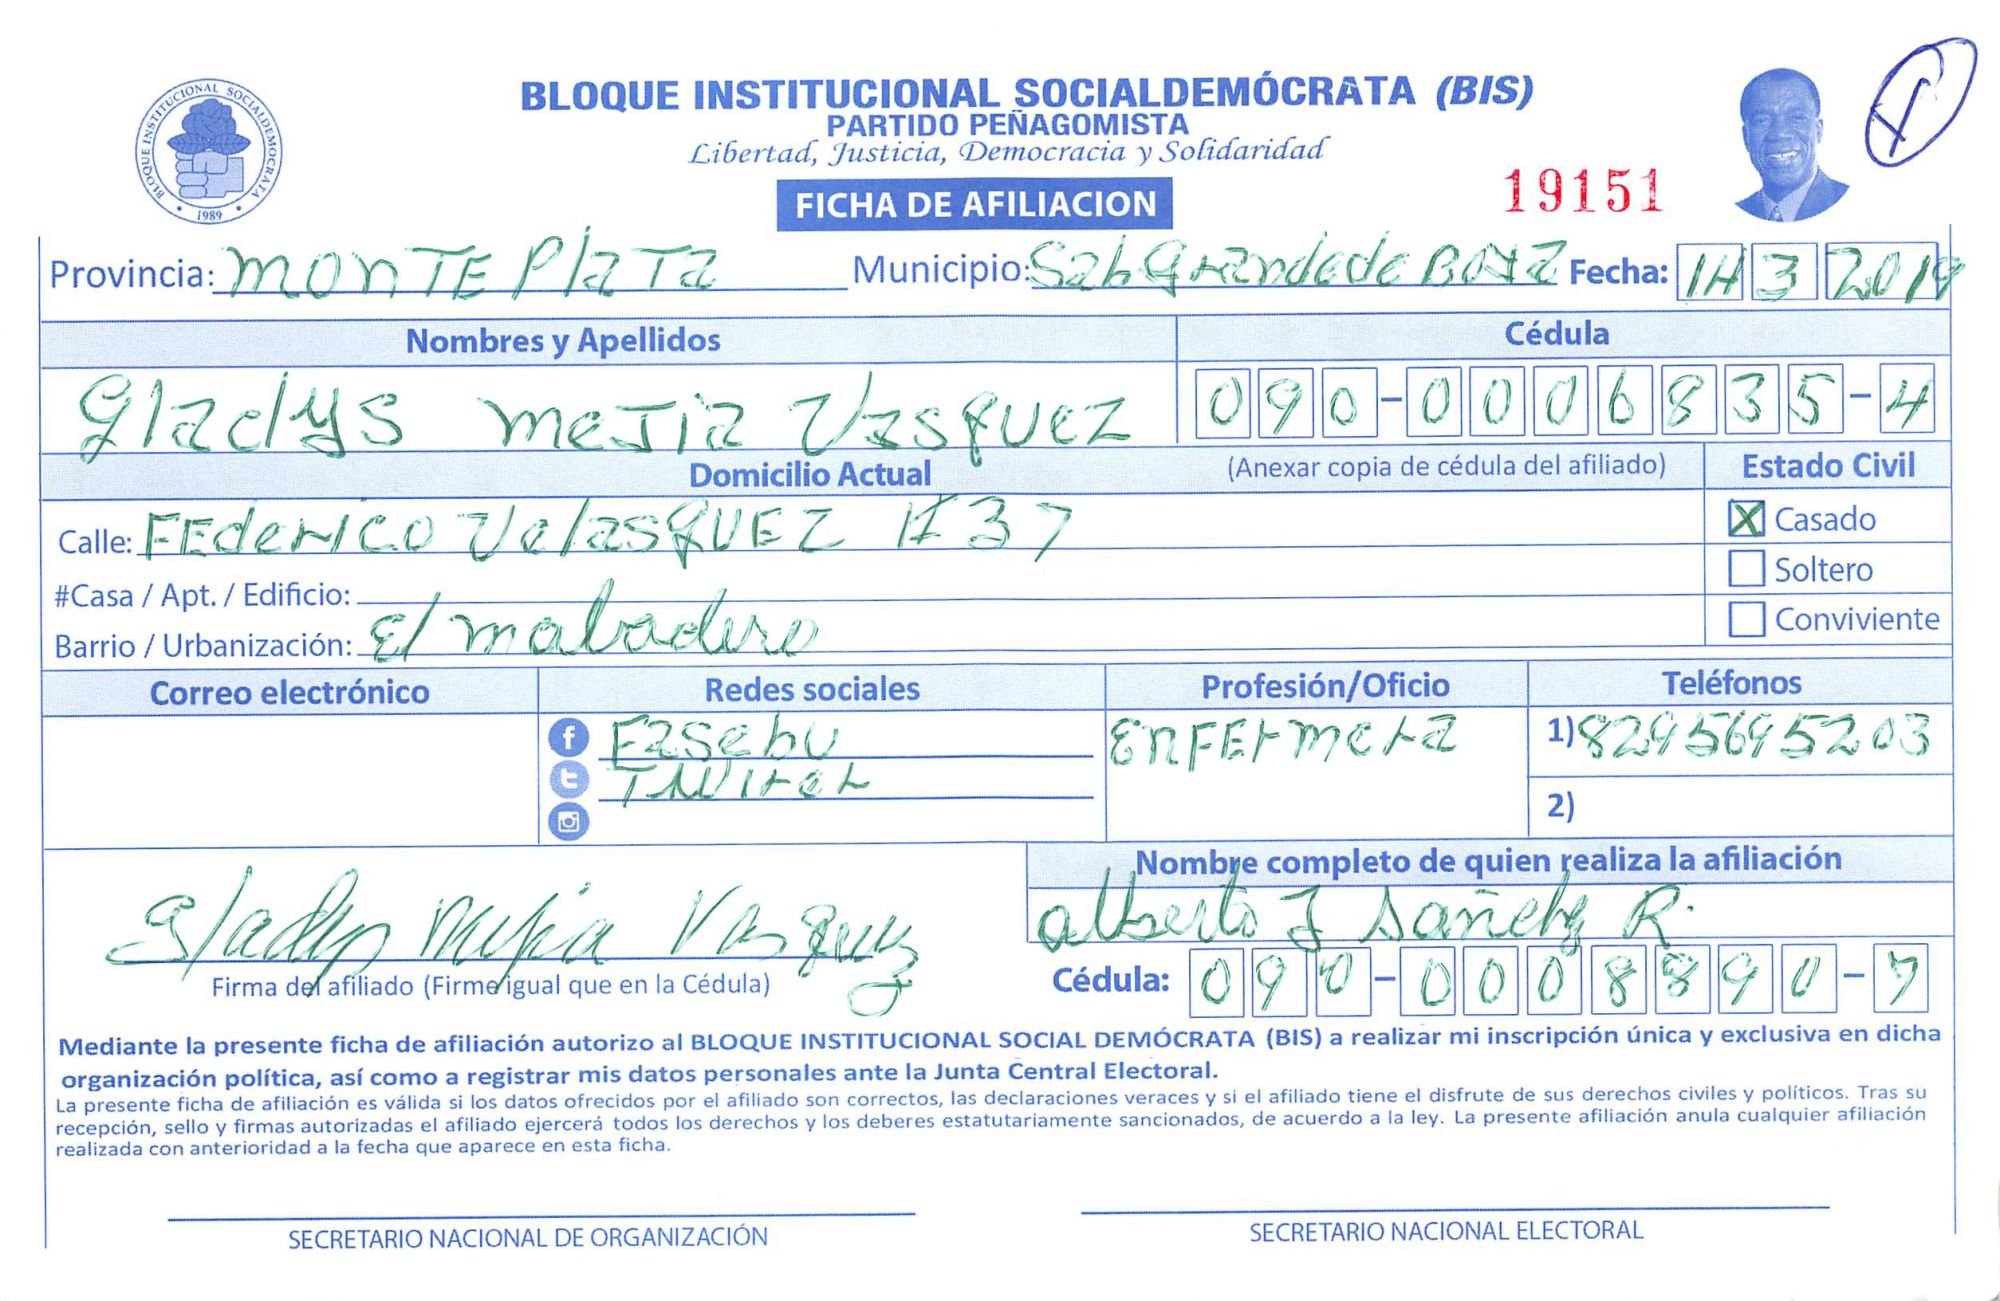 BLOQUE INSTITUCIONAL SOCIALDEMOCRATA
1989
BLOQUE INSTITUCIONAL SOCIALDEMÓCRATA (BIS)
PARTIDO PEÑAGOMISTA
Libertad, Justicia, Democracia y Solidaridad
FICHA DE AFILIACION
19151
Provincia: MONTE PlaTa Municipio: Sab Grande de BOYa Fecha: 14 3 2019
Nombres y Apellidos Cédula
Gladys MeJia Vasquez 090-0006835-4
Domicilio Actual (Anexar copia de cédula del afiliado) Estado Civil
Calle: FEderico VelasQUEZ #37 X Casado
Soltero
#Casa / Apt. / Edificio:
Conviviente
Barrio / Urbanización: El mabadero
Correo electrónico Redes sociales Profesión/Oficio Teléfonos
f Fasebu ENFErmera 1) 8295695203
Twiter
2)
Nombre completo de quien realiza la afiliación
Gladys Mejia Vasquez Alberto J Sañchz R.
Firma del afiliado (Firme igual que en la Cédula) Cédula: 090-0008890-7
Mediante la presente ficha de afiliación autorizo al BLOQUE INSTITUCIONAL SOCIAL DEMÓCRATA (BIS) a realizar mi inscripción única y exclusiva en dicha
organización política, así como a registrar mis datos personales ante la Junta Central Electoral.
La presente ficha de afiliación es válida si los datos ofrecidos por el afiliado son correctos, las declaraciones veraces y si el afiliado tiene el disfrute de sus derechos civiles y políticos. Tras su
recepción, sello y firmas autorizadas el afiliado ejercerá todos los derechos y los deberes estatutariamente sancionados, de acuerdo a la ley. La presente afiliación anula cualquier afiliación
realizada con anterioridad a la fecha que aparece en esta ficha.
SECRETARIO NACIONAL DE ORGANIZACIÓN SECRETARIO NACIONAL ELECTORAL